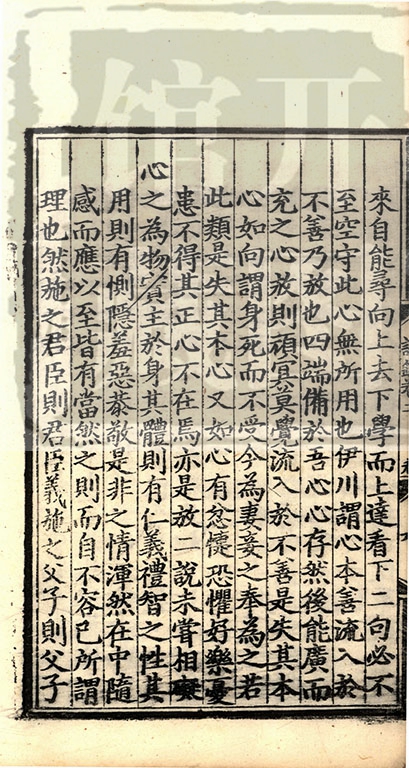 來自能尋向上去下學而上達看下二句必不
至空守此心無所用也伊川謂心本善流入於
不善乃放也四端備於吾心心存然後能廣而
充之心放則頑冥莫覺流入於不善是失其本
心如向謂身死而不受今為妻妾之奉為之若
此類是失其本心又如心有忿懥恐懼好樂憂
患不得其正心不在焉亦是放二說未嘗相礙
心之為物實主於身其體則有仁義禮智之性其
用則有惻隱羞惡恭敬是非之情渾然在中隨
感而應以至皆有當然之則而自不容已所謂
理也然施之君臣則君臣義施之父子則父子